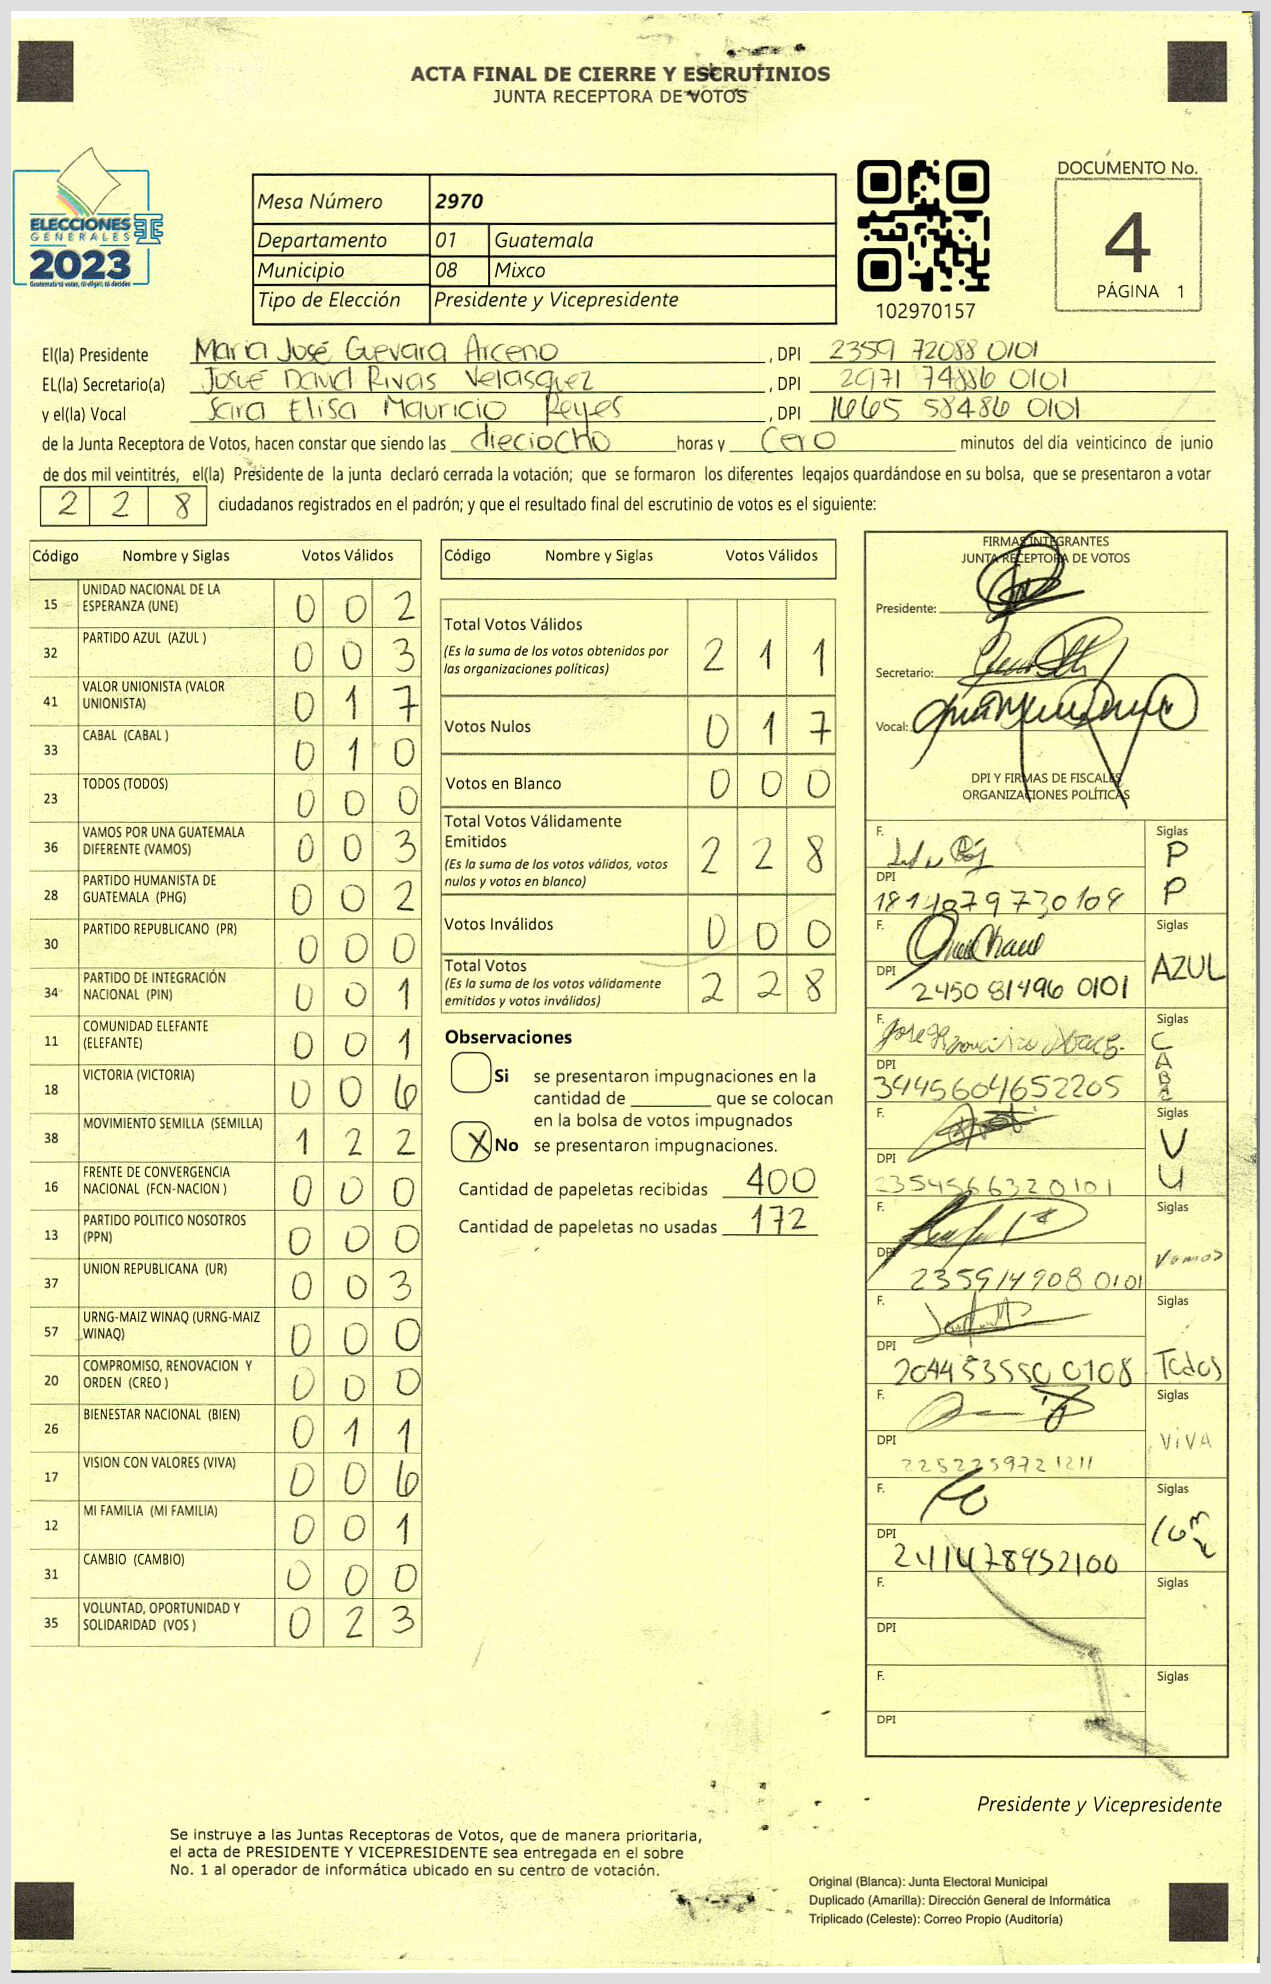 ACTA FINAL DE CIERRE Y ESCRUTINIOS
JUNTA RECEPTORA DE VOTOS
ELECCIONES
GENERALES
2023
Guatemala tú votas, tú eliges, tú decides
Mesa Número 2970
Departamento 01 Guatemala
Municipio 08 Mixco
Tipo de Elección Presidente y Vicepresidente
102970157
DOCUMENTO No.
4
PÁGINA 1
El(la) Presidente Maria José Guevara Arceno, DPI 2359 72088 0101
EL(la) Secretario(a) Josué David Rivas Velasquez, DPI 2971 74886 0101
y el(la) Vocal Sara Elisa Mauricio Reyes, DPI 1665 58486 0101
de la Junta Receptora de Votos, hacen constar que siendo las dieciocho horas y Cero minutos del día veinticinco de junio
de dos mil veintitrés, el(la) Presidente de la junta declaró cerrada la votación; que se formaron los diferentes legajos guardándose en su bolsa, que se presentaron a votar
2 2 8 ciudadanos registrados en el padrón; y que el resultado final del escrutinio de votos es el siguiente:
Código Nombre y Siglas Votos Válidos
15 UNIDAD NACIONAL DE LA ESPERANZA (UNE) 0 0 2
32 PARTIDO AZUL (AZUL ) 0 0 3
41 VALOR UNIONISTA (VALOR UNIONISTA) 0 1 7
33 CABAL (CABAL ) 0 1 0
23 TODOS (TODOS) 0 0 0
36 VAMOS POR UNA GUATEMALA DIFERENTE (VAMOS) 0 0 3
28 PARTIDO HUMANISTA DE GUATEMALA (PHG) 0 0 2
30 PARTIDO REPUBLICANO (PR) 0 0 0
34 PARTIDO DE INTEGRACIÓN NACIONAL (PIN) 0 0 1
11 COMUNIDAD ELEFANTE (ELEFANTE) 0 0 1
18 VICTORIA (VICTORIA) 0 0 6
38 MOVIMIENTO SEMILLA (SEMILLA) 1 2 2
16 FRENTE DE CONVERGENCIA NACIONAL (FCN-NACION ) 0 0 0
13 PARTIDO POLITICO NOSOTROS (PPN) 0 0 0
37 UNION REPUBLICANA (UR) 0 0 3
57 URNG-MAIZ WINAQ (URNG-MAIZ WINAQ) 0 0 0
20 COMPROMISO, RENOVACION Y ORDEN (CREO ) 0 0 0
26 BIENESTAR NACIONAL (BIEN) 0 1 1
17 VISION CON VALORES (VIVA) 0 0 6
12 MI FAMILIA (MI FAMILIA) 0 0 1
31 CAMBIO (CAMBIO) 0 0 0
35 VOLUNTAD, OPORTUNIDAD Y SOLIDARIDAD (VOS ) 0 2 3
Código Nombre y Siglas Votos Válidos
Total Votos Válidos 2 1 1
(Es la suma de los votos obtenidos por
las organizaciones políticas)
Votos Nulos 0 1 7
Votos en Blanco 0 0 0
Total Votos Válidamente
Emitidos 2 2 8
(Es la suma de los votos válidos, votos
nulos y votos en blanco)
Votos Inválidos 0 0 0
Total Votos 2 2 8
(Es la suma de los votos válidamente
emitidos y votos inválidos)
Observaciones
Si se presentaron impugnaciones en la
cantidad de ________ que se colocan
en la bolsa de votos impugnados
X No se presentaron impugnaciones.
Cantidad de papeletas recibidas 400
Cantidad de papeletas no usadas 172
FIRMAS INTEGRANTES
JUNTA RECEPTORA DE VOTOS
Presidente:
Secretario:
Vocal:
DPI Y FIRMAS DE FISCALES
ORGANIZACIONES POLÍTICAS
F. Siglas P P
DPI
F. Siglas AZUL
DPI 2450 81496 0101
F. Siglas CABAL
DPI 3445604652205
F. Siglas V U
DPI 2354566320101
F. Siglas Vamos
DPI 235914908 0101
F. Siglas Todos
DPI 204453550 0108
F. Siglas VIVA
DPI 2252259721211
F. Siglas
DPI 2411478952100
F. Siglas
DPI
F. Siglas
DPI
Presidente y Vicepresidente
Se instruye a las Juntas Receptoras de Votos, que de manera prioritaria,
el acta de PRESIDENTE Y VICEPRESIDENTE sea entregada en el sobre
No. 1 al operador de informática ubicado en su centro de votación.
Original (Blanca): Junta Electoral Municipal
Duplicado (Amarilla): Dirección General de Informática
Triplicado (Celeste): Correo Propio (Auditoría)